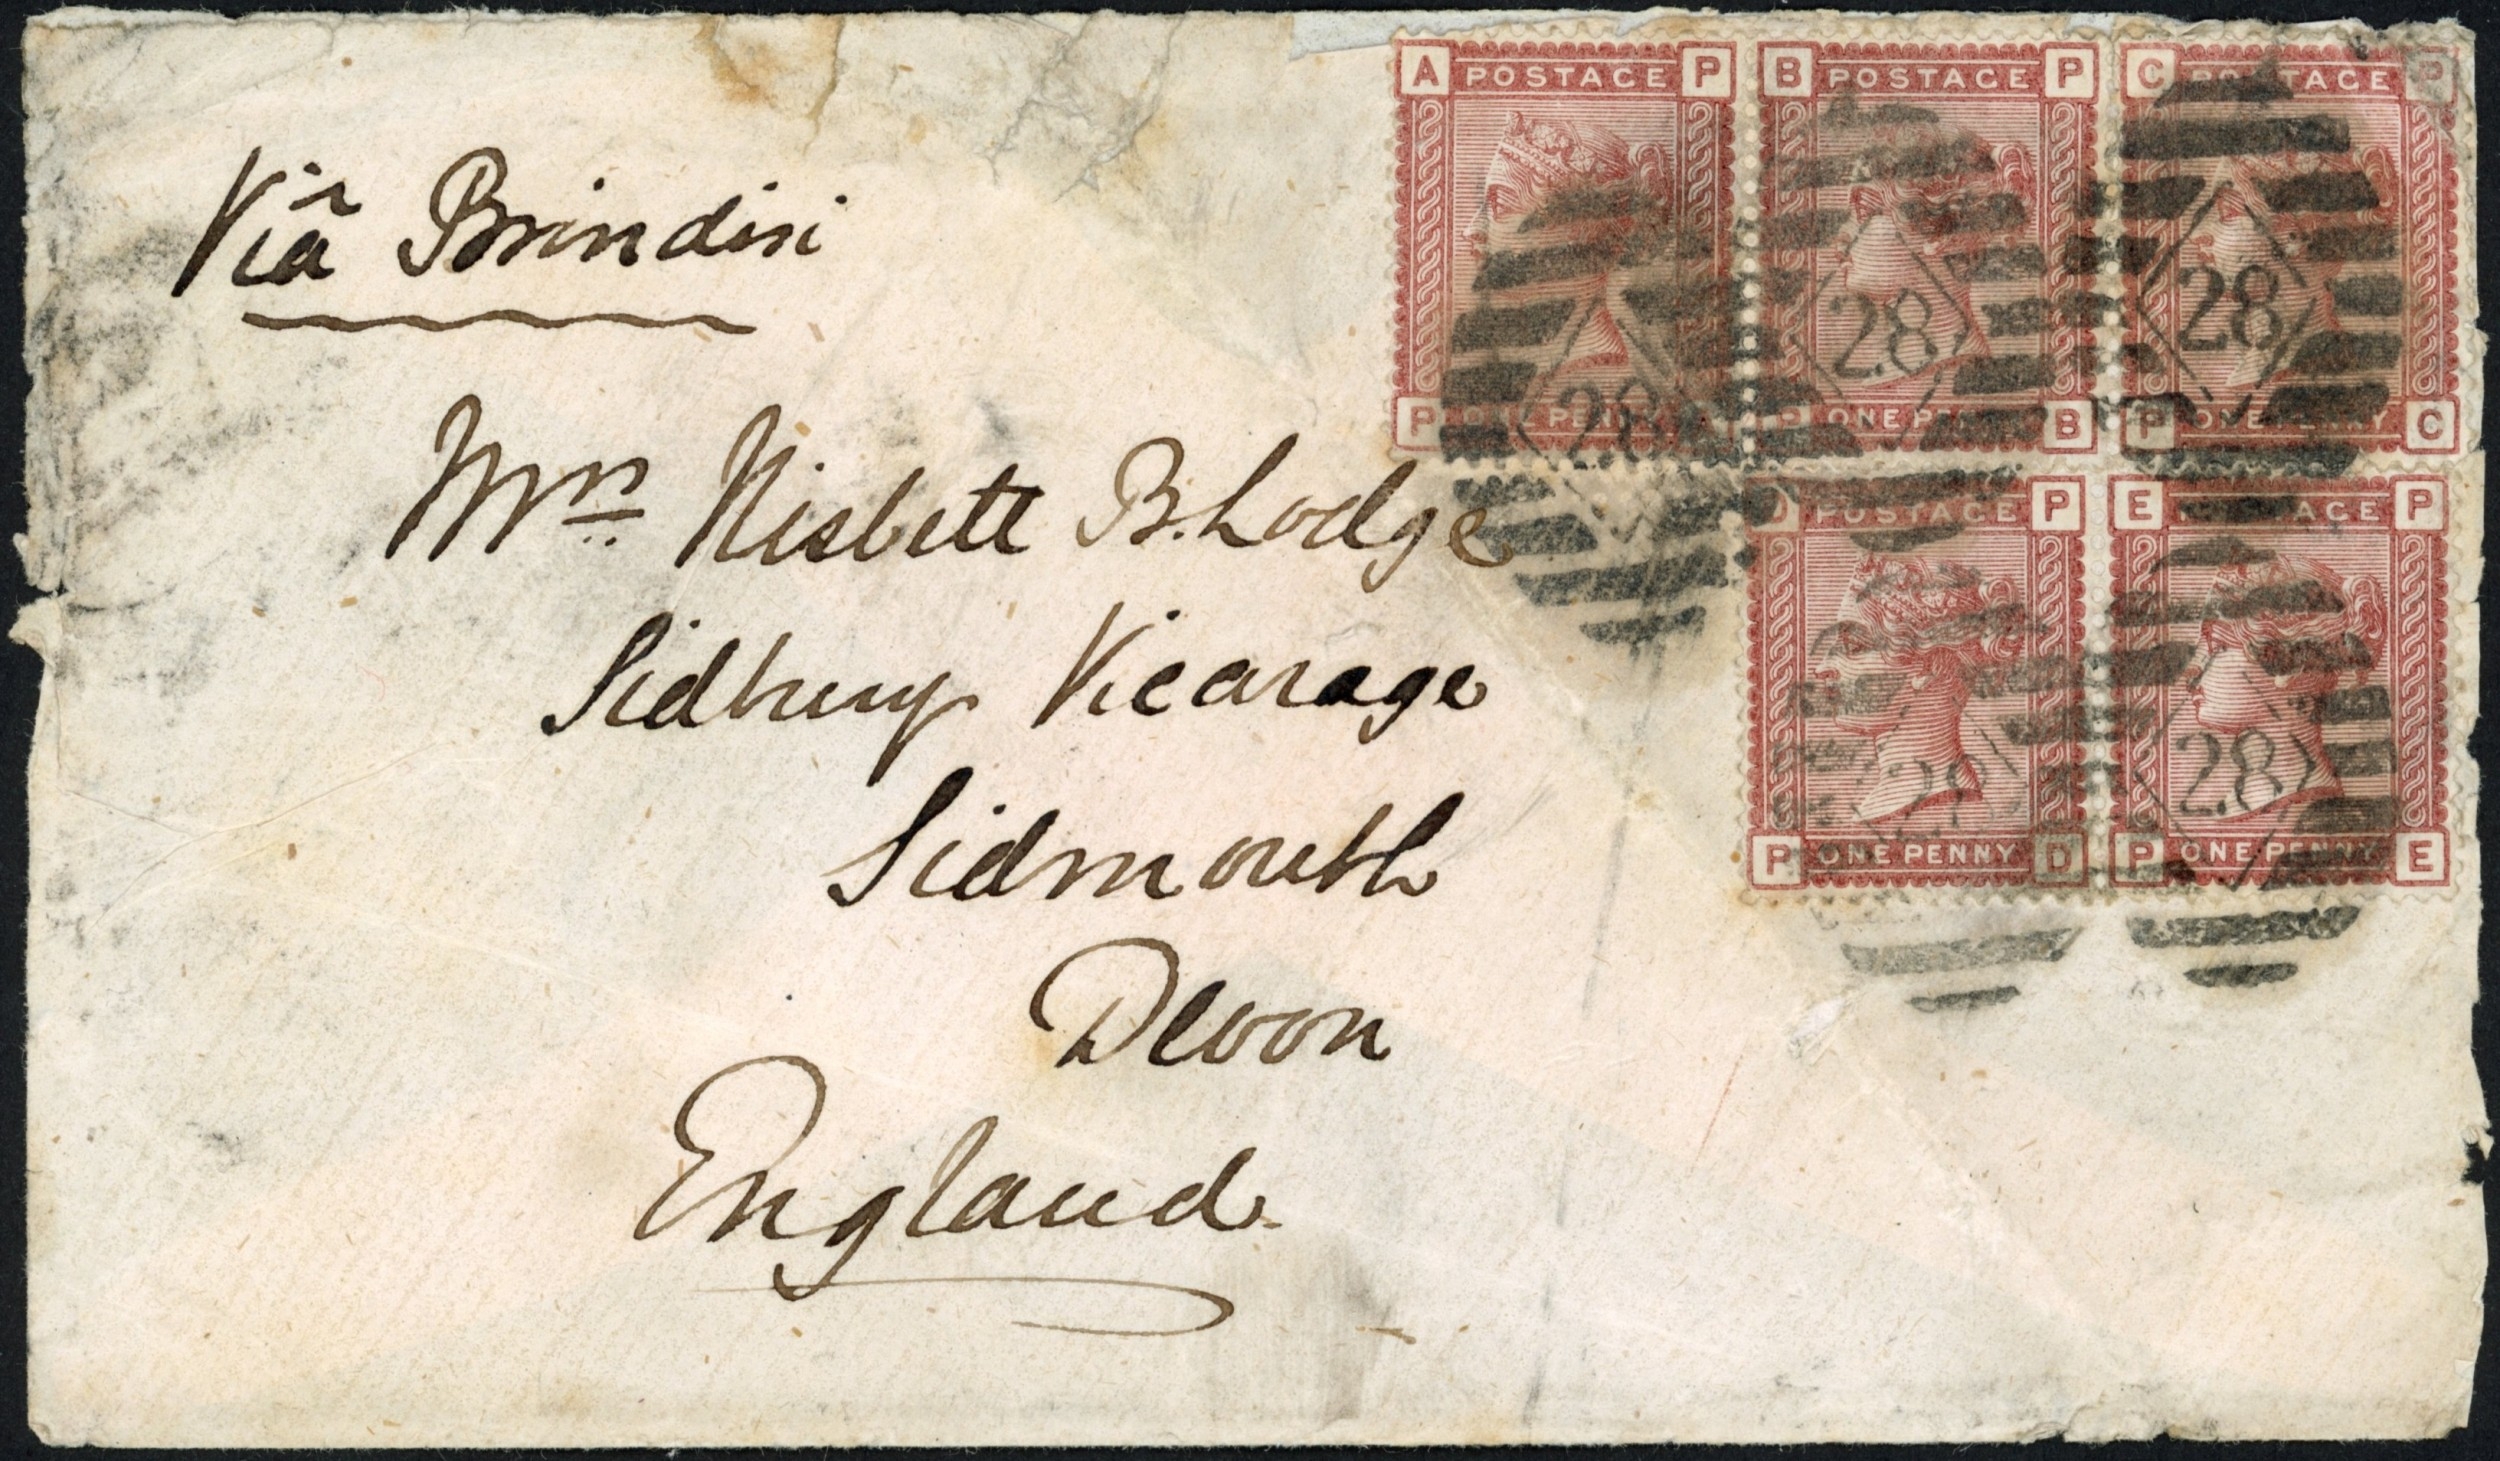 Viâ Brindisi
Mrs Nisbett B. Lodge
Sidbury Vicarage
Sidmouth
Devon
England
A POSTAGE P
P ONE PENNY
B POSTAGE P
P ONE PENNY B
C POSTAGE P
P ONE PENNY C
D POSTAGE P
P ONE PENNY D
E POSTAGE P
P ONE PENNY E
28
28
28
28
28